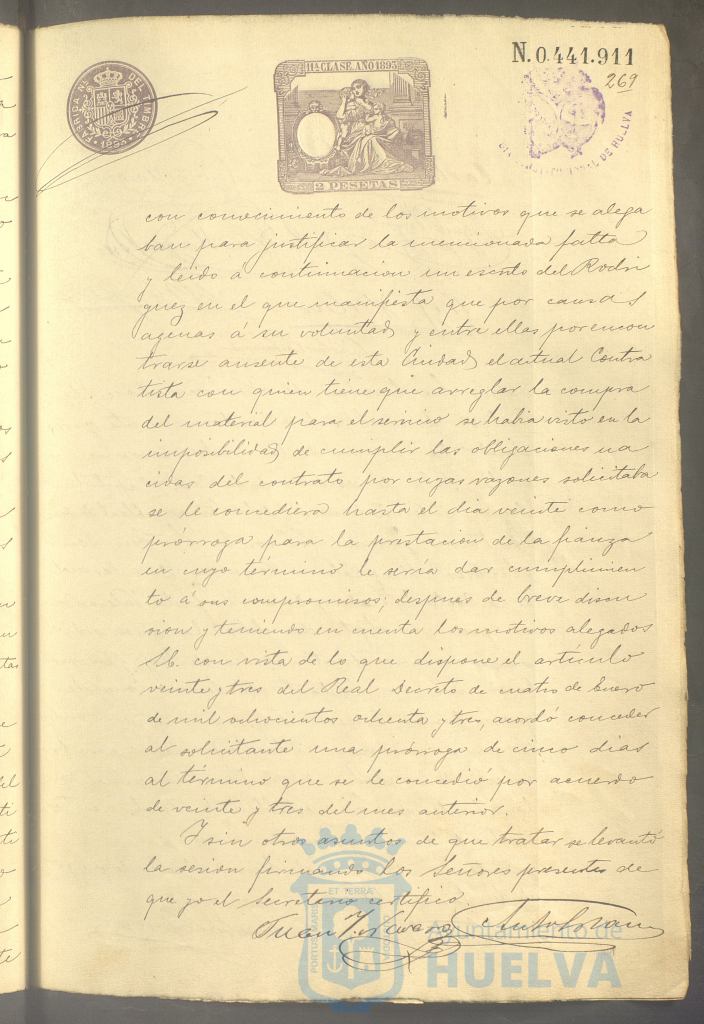 N.0.441.911
269
FABRICA Nª DEL TIMBRE
1893
11ª CLASE AÑO 1893
2 PESETAS
DE HUELVA
con conocimiento de los motivos que se alega
ban para justificar la mencionada falta
y leido á continuacion un escrito del Rodri
guez en el que manifiesta que por causas
agenas á su voluntad y entre ellas por encon
trarse ausente de esta Ciudad el actual Contra
tista con quien tiene que arreglar la compra
del material para el servicio se habia visto en la
imposibilidad de cumplir las obligaciones na
cidas del contrato por cuyas razones solicitaba
se le concediera hasta el dia veinte como
prórroga para la prestacion de la fianza
en cuyo término le sería dar cumplimien
to á sus compromisos; despues de breve discu
sion y teniendo en cuenta los motivos alegados
con vista de lo que dispone el artículo
veinte y tres del Real Decreto de cuatro de Enero
de mil ochocientos ochenta y tres, acordó conceder
al solicitante una prórroga de cinco dias
al término que se le concedió por acuerdo
de veinte y tres del mes anterior.
Y sin otros asuntos de que tratar se levantó
la sesion firmando los Señores presentes de
que yo el Secretario certifico.
Juan
PORTUS MARIS ET TERRAE CUSTODIA
Ayuntamiento de
HUELVA